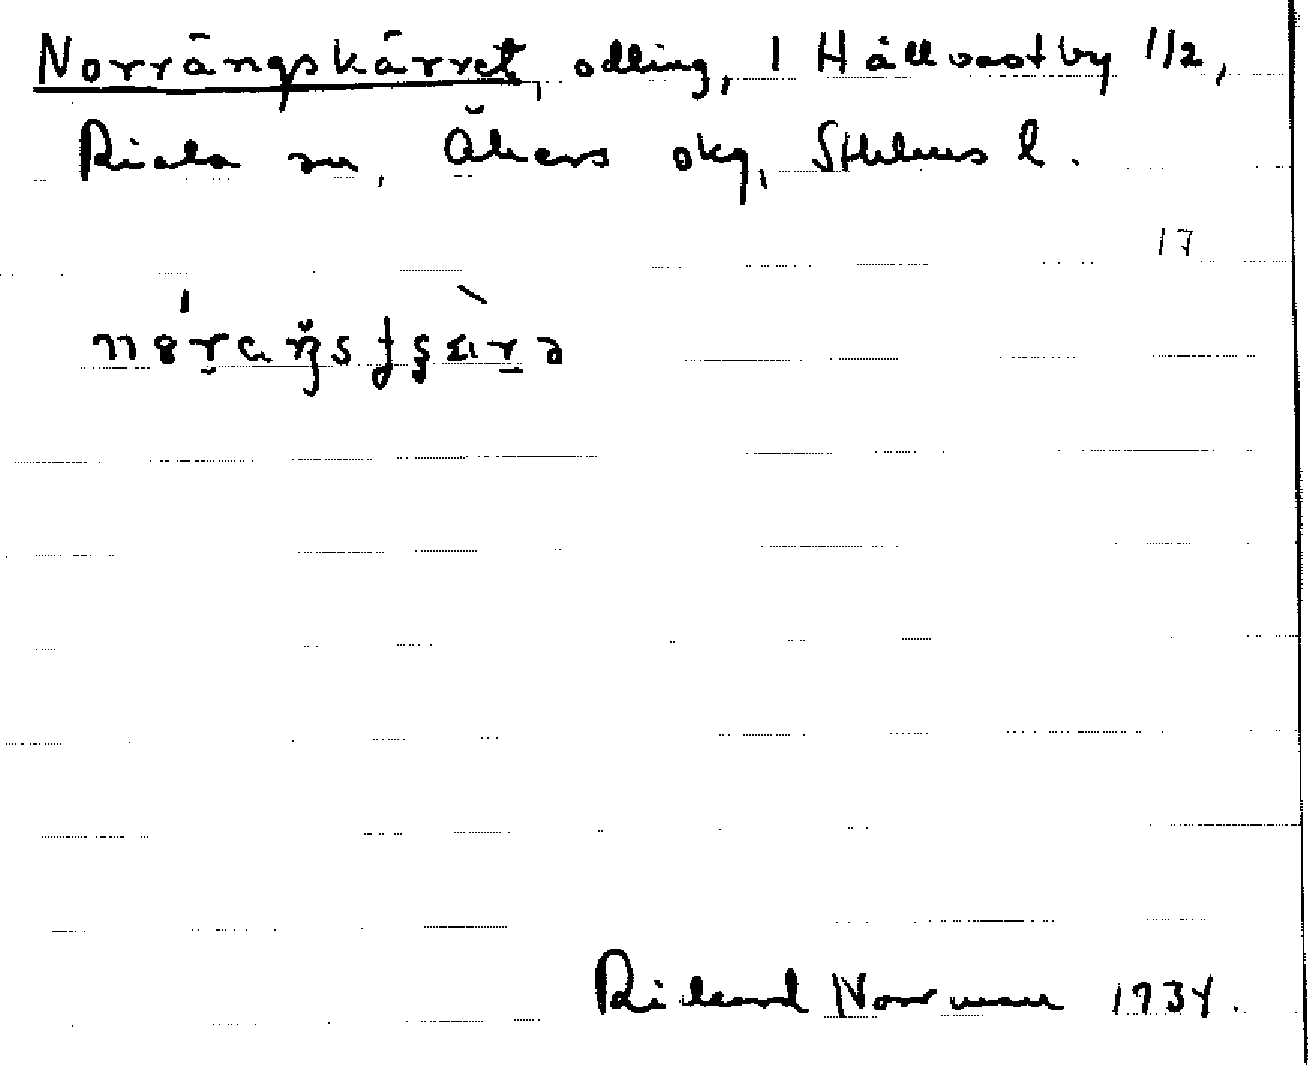 Norrängskärret, odling, 1 Hållvastby 1/2,
Riala sn, Åkers skg, Sthlms l.
17
Rikard Norrman 1934.